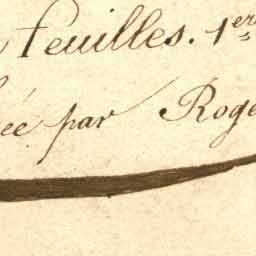 feuilles. 1er
ée par Roge